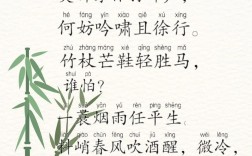 hé fáng yín xiào qiě xú xíng
何妨吟啸且徐行。
zhú zhàng máng xié qīng shèng mǎ
竹杖芒鞋轻胜马，
shuí pà
谁怕？
suō yān yǔ rèn píng shēng
一蓑烟雨任平生
liào qiào chūn fēng chuī jiǔ xǐng wēi lěng
料峭春风吹酒醒，微冷，